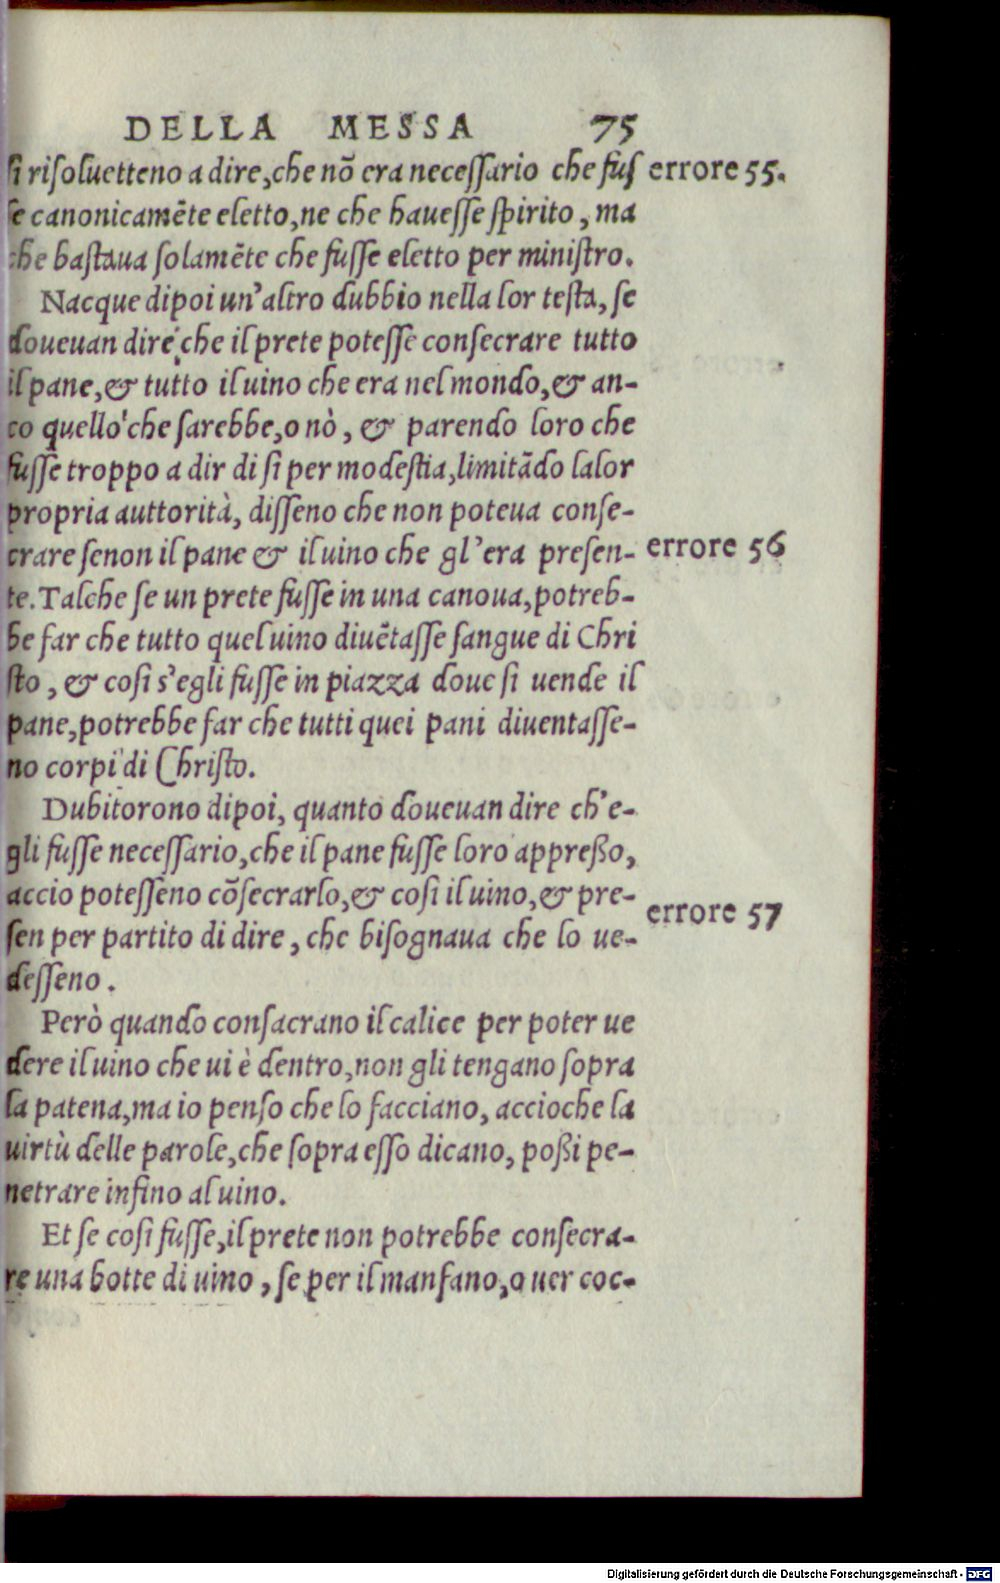 DELLA MESSA 75
si risoluetteno a dire, che nõ era necessario che fus errore 55.
se canonicamẽte eletto, ne che hauesse spirito, ma
che bastaua solamẽte che fusse eletto per ministro.
Nacque dipoi un'altro dubbio nella lor testa, se
doueuan dire, che il prete potesse consecrare tutto
il pane, & tutto il uino che era nel mondo, & an-
co quello che sarebbe, o nò, & parendo loro che
fusse troppo a dir di si per modestia, limitãdo la lor
propria auttorità, disseno che non poteua conse-
crare senon il pane & il uino che gl'era presen- errore 56
te. Talche se un prete fusse in una canoua, potreb-
be far che tutto quel uino diuẽtasse sangue di Chri
sto, & cosi s'egli fusse in piazza doue si uende il
pane, potrebbe far che tutti quei pani diuentasse-
no corpi di Christo.
Dubitorono dipoi, quanto doueuan dire ch'e-
gli fusse necessario, che il pane fusse loro appreßo,
accio potesseno cõsecrarlo, & cosi il uino, & pre- errore 57
sen per partito di dire, che bisognaua che lo ue-
desseno.
Però quando consacrano il calice per poter ue
dere il uino che ui è dentro, non gli tengano sopra
la patena, ma io penso che lo facciano, accioche la
uirtù delle parole, che sopra esso dicano, poßi pe-
netrare infino al uino.
Et se cosi fusse, il prete non potrebbe consecra-
re una botte di uino, se per il manfano, o uer coc-
Digitalisierung gefördert durch die Deutsche Forschungsgemeinschaft - DFG